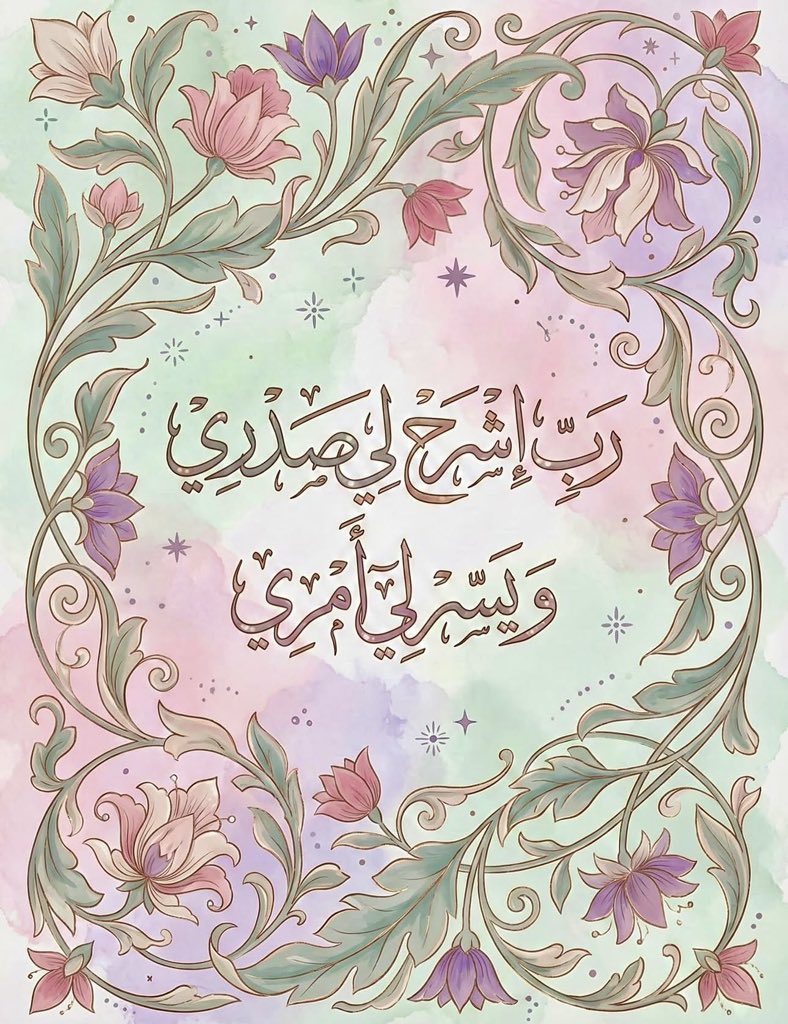 رَبِّ إِشْرَحْ لِي صَدْرِي
وَيَسِّرْ لِيٓ أَمْرِي